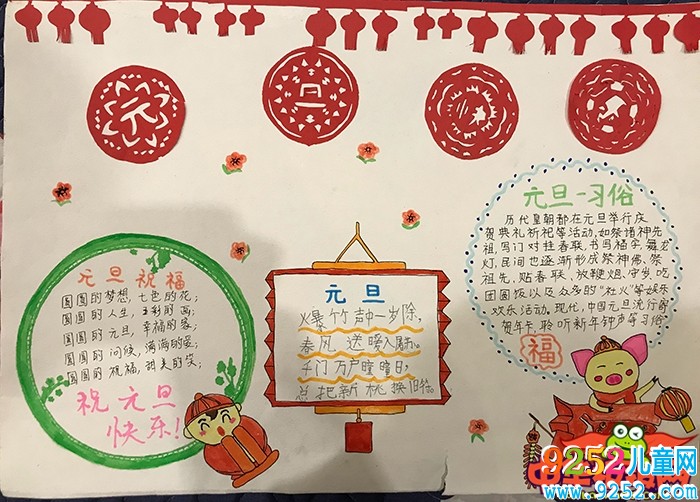 元
旦
元旦祝福
圆圆的梦想，七色的花；
圆圆的人生，五彩的画；
圆圆的元旦，幸福的家；
圆圆的问候，满满的爱；
圆圆的祝福，甜美的笑；
祝元旦
快乐！
元旦
爆竹声中一岁除，
春风送暖入屠苏。
千门万户曈曈日，
总把新桃换旧符
元旦-习俗
历代皇朝都在元旦举行庆
贺典礼祈祀等活动，如祭诸神先
祖，写门对挂春联，书写福字、舞龙
灯，民间也逐渐形成祭神佛、祭
祖先、贴春联、放鞭炮、守岁、吃
团圆饭以及众多的“社火”等娱乐
欢乐活动。现代，中国元旦流行寄
贺年卡、聆听新年钟声等习俗
福
9252儿童网
www.9252.com